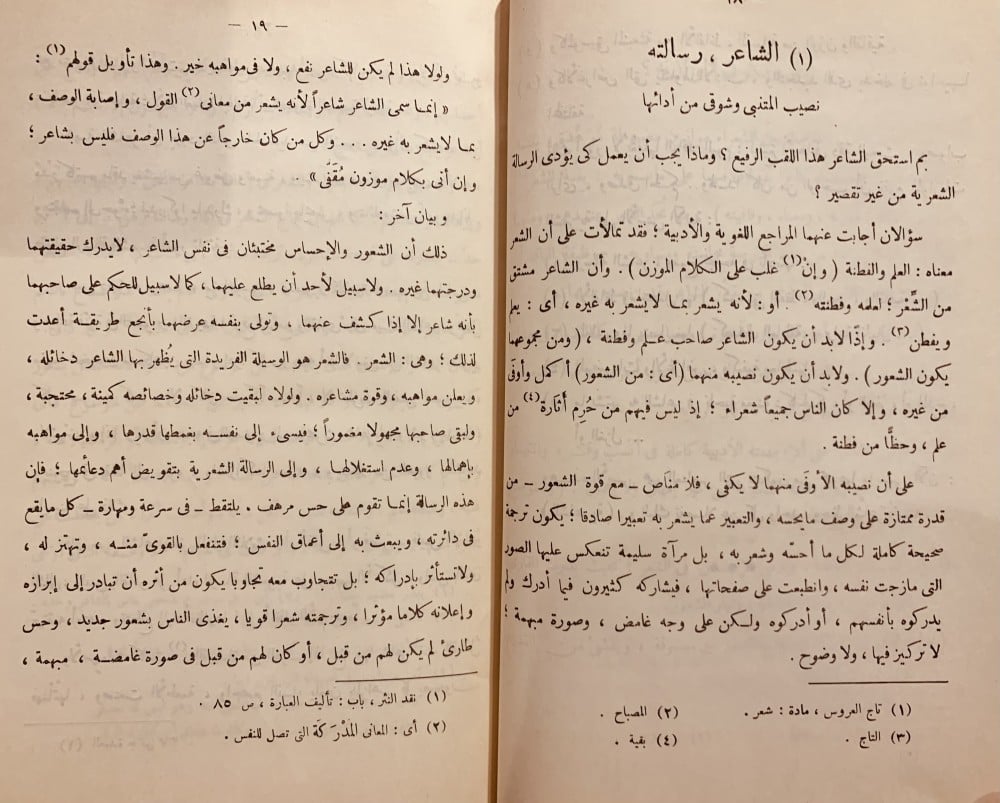 ١٨
(١) الشاعر ، رسالته
نصيب المتنبى وشوقى من أدائها
بم استحق الشاعر هذا اللقب الرفيع ؟ وماذا يجب أن يعمل كى يؤدى الرسالة
الشعرية من غير تقصير ؟
سؤالان أجابت عنهما المراجع اللغوية والأدبية ؛ فقد تمالأت على أن الشعر
معناه : العلم والفطنة ( وإنْ(١) غلب على الكلام الموزن ) . وأن الشاعر مشتق
من الشِّعْر ؛ لعلمه وفطنته(٢) . أو : لأنه يشعر بمـا لايشعر به غيره ، أى : يعلم
ويفطن(٣) . وإذًا لابد أن يكون الشاعر صاحب عـلم وفطنة ، ( ومن مجموعهما
يكون الشعور ) . ولابد أن يكون نصيبه منهما ( أى : من الشعور ) أكمل وأوفَى
من غيره ، وإلا كان الناس جميعاً شعراء ؛ إذ ليس فيهم من حُرِم أثَارة(٤) من
علم ، وحظًّا من فطنة .
على أن نصيبه الأوفَى منهما لا يكفى ، فلا منَاص ــ مع قوة الشعور ــ من
قدرة ممتازة على وصف مايحسه ، والتعبير عما يشعر به تعبيرا صادقا ؛ يكون ترجمة
صحيحة كاملة لكل ما أحسّه وشعر به ، بل مرآة سليمة تنعكس عليها الصور
التى مازجت نفسه ، وانطبعت على صفحاتها ، فيشاركه كثيرون فيما أدرك ولم
يدركوه بأنفسهم ، أو أدركوه ولـكن على وجه غامض ، وصورة مبهمة ؛
لا تركيز فيها ، ولا وضوح .
(١) تاج العروس ، مادة : شعر . (٢) المصباح .
(٣) التاج . (٤) بقية .
— ١٩ —
ولولا هذا لم يكن للشاعر نفع ، ولا فى مواهبه خير . وهذا تأويل قولهم(١) :
« إنمـا سمى الشاعر شاعراً لأنه يشعر من معانى(٢) القول ، وإصابة الوصف ،
بمـا لايشعر به غيره ... وكل من كان خارجاً عن هذا الوصف فليس بشاعر ؛
وإن أتى بكلام موزون مُقَفًى » ..
وبيان آخر :
ذلك أن الشعور والإحساس مختبئان فى نفس الشاعر ، لايدرك حقيقتهما
ودرجتهما غيره . ولاسبيل لأحد أن يطلع عليهما ، كما لاسبيل للحكم على صاحبهما
بأنه شاعر إلا إذا كشف عنهمـا ، وتولى بنفسه عرضهما بأنجع طريقـة أعدت
لذلك ؛ وهى : الشعر . فالشعر هو الوسيلة الفريدة التى يُظهر بها الشاعر دخائله ،
ويعلن مواهبه ، وقوة مشاعره . ولولاه لبقيت دخائله وخصائصه كمينة ، محتجبة ،
ولبقى صاحبها مجهولا مغمورا ؛ فيسىء إلى نفســه بغمطها قدرها ، وإلى مواهبه
بإهمالها ، وعدم استغلالهـا ، وإلى الرسالة الشعرية بتقويض أهم دعائمها ؛ فإن
هذه الرسالة إنمـا تقوم على حس مرهف . يلتقط ــ فى سرعة ومهارة ــ كل مايقع
فى دائرته ، ويبعث به إلى أعماق النفس ؛ فتنفعل بالقوىّ منـه ، وتهتز له ،
ولا تستأثر بإدراكه ؛ بل تتجاوب معه تجاوبا يكون من أثره أن تبادر إلى إبرازه
وإعلانه كلاما مؤثرا ، وترجمته شعرا قويا ، يغذى الناس بشعور جديد ، وحس
طارئ لم يكن لهم من قبل ، أو كان لهم من قبل فى صورة غامضـة ، مبهمة ،
(١) نقد النثر ، باب : تأليف العبارة ، ص ٨٥ .
(٢) أى : المعانى المدْرَكَة التى تصل للنفس .